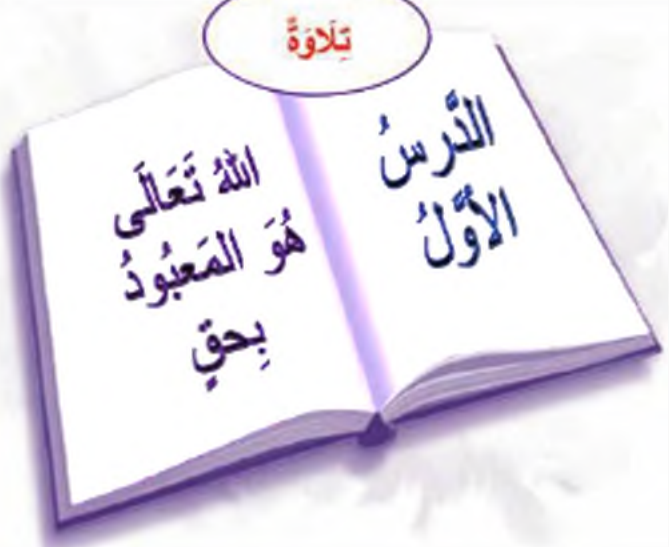 تِلَاوَةٌ
الدَّرسُ
الأوَّلُ
اللهُ تَعَالَى
هُوَ المَعبُودُ
بِحقٍ